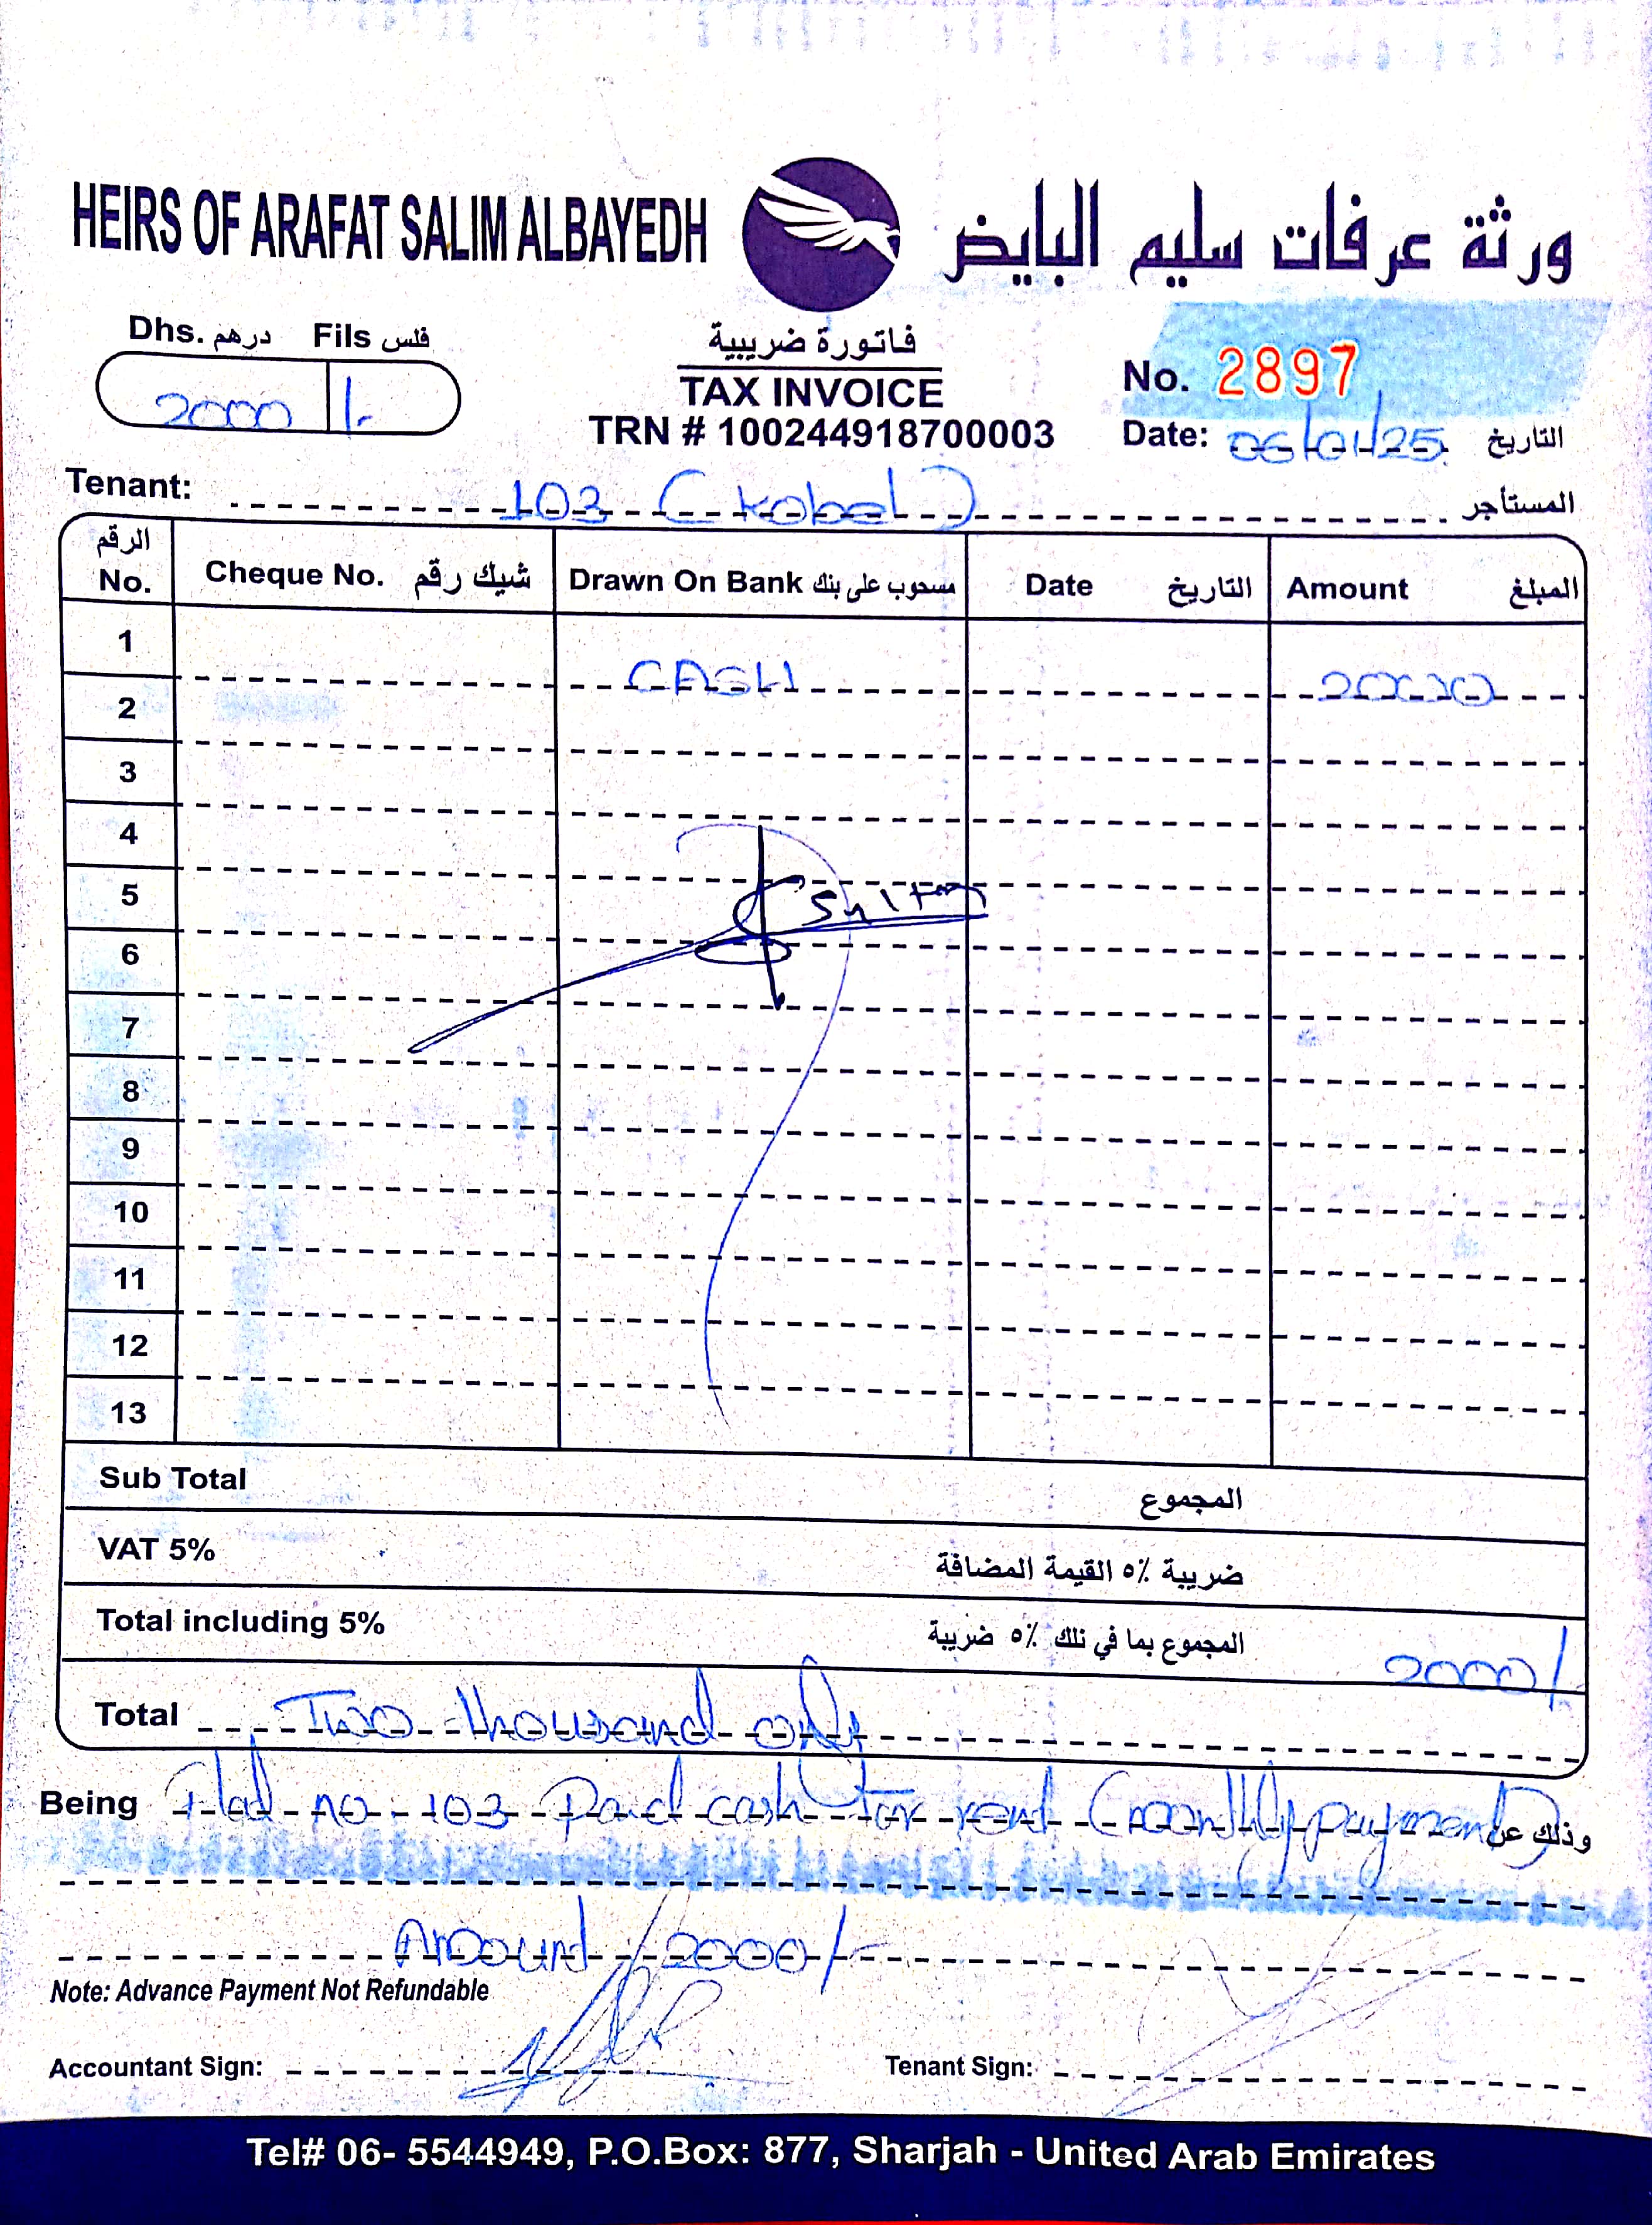 HEIRS OF ARAFAT SALIM ALBAYEDH ورثة عرفات سليم البايض
Dhs. درهم Fils فلس
2000 /-
فاتورة ضريبية
TAX INVOICE
TRN # 100244918700003
No. 2897
Date: 06/01/25 التاريخ
Tenant: 103 (Kobel) المستأجر
الرقم No. Cheque No. شيك رقم Drawn On Bank مسحوب على بنك Date التاريخ Amount المبلغ
1 CASH 2000
2
3
4
5 Sultan
6
7
8
9
10
11
12
13
Sub Total المجموع
VAT 5% ضريبة ٥٪ القيمة المضافة
Total including 5% المجموع بما في ذلك ٥٪ ضريبة 2000/
Total Two thousand only
Being Flat no 103 Paid cash for rent (monthly payment) وذلك عن
Amount 2000/-
Note: Advance Payment Not Refundable
Accountant Sign: Tenant Sign:
Tel# 06- 5544949, P.O.Box: 877, Sharjah - United Arab Emirates